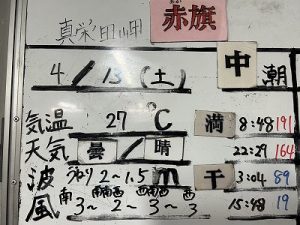 真栄田岬 赤旗
4/13(土) 中潮
気温 27℃ 満 8:48 191
天気 曇/晴 22:29 164
波 うねり2~1.5m 干 3:04 89
風 南3~南南西2~南西3~西3 15:48 19